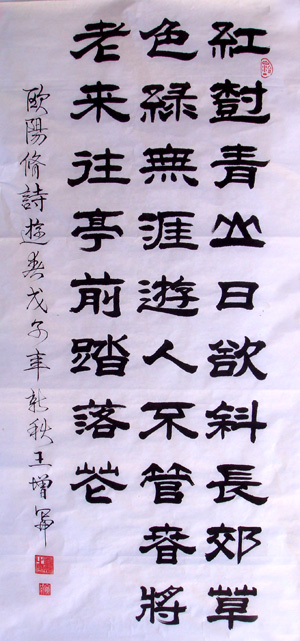 紅樹青山日欲斜長郊草
色綠無涯遊人不管春將
老来往亭前踏落花
歐陽脩詩遊春戊子年新秋王增軍